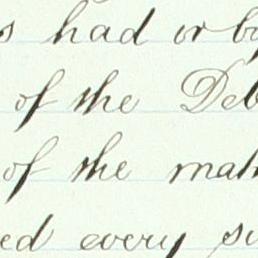 s had or by
of the Deb
of the mat
ed every su